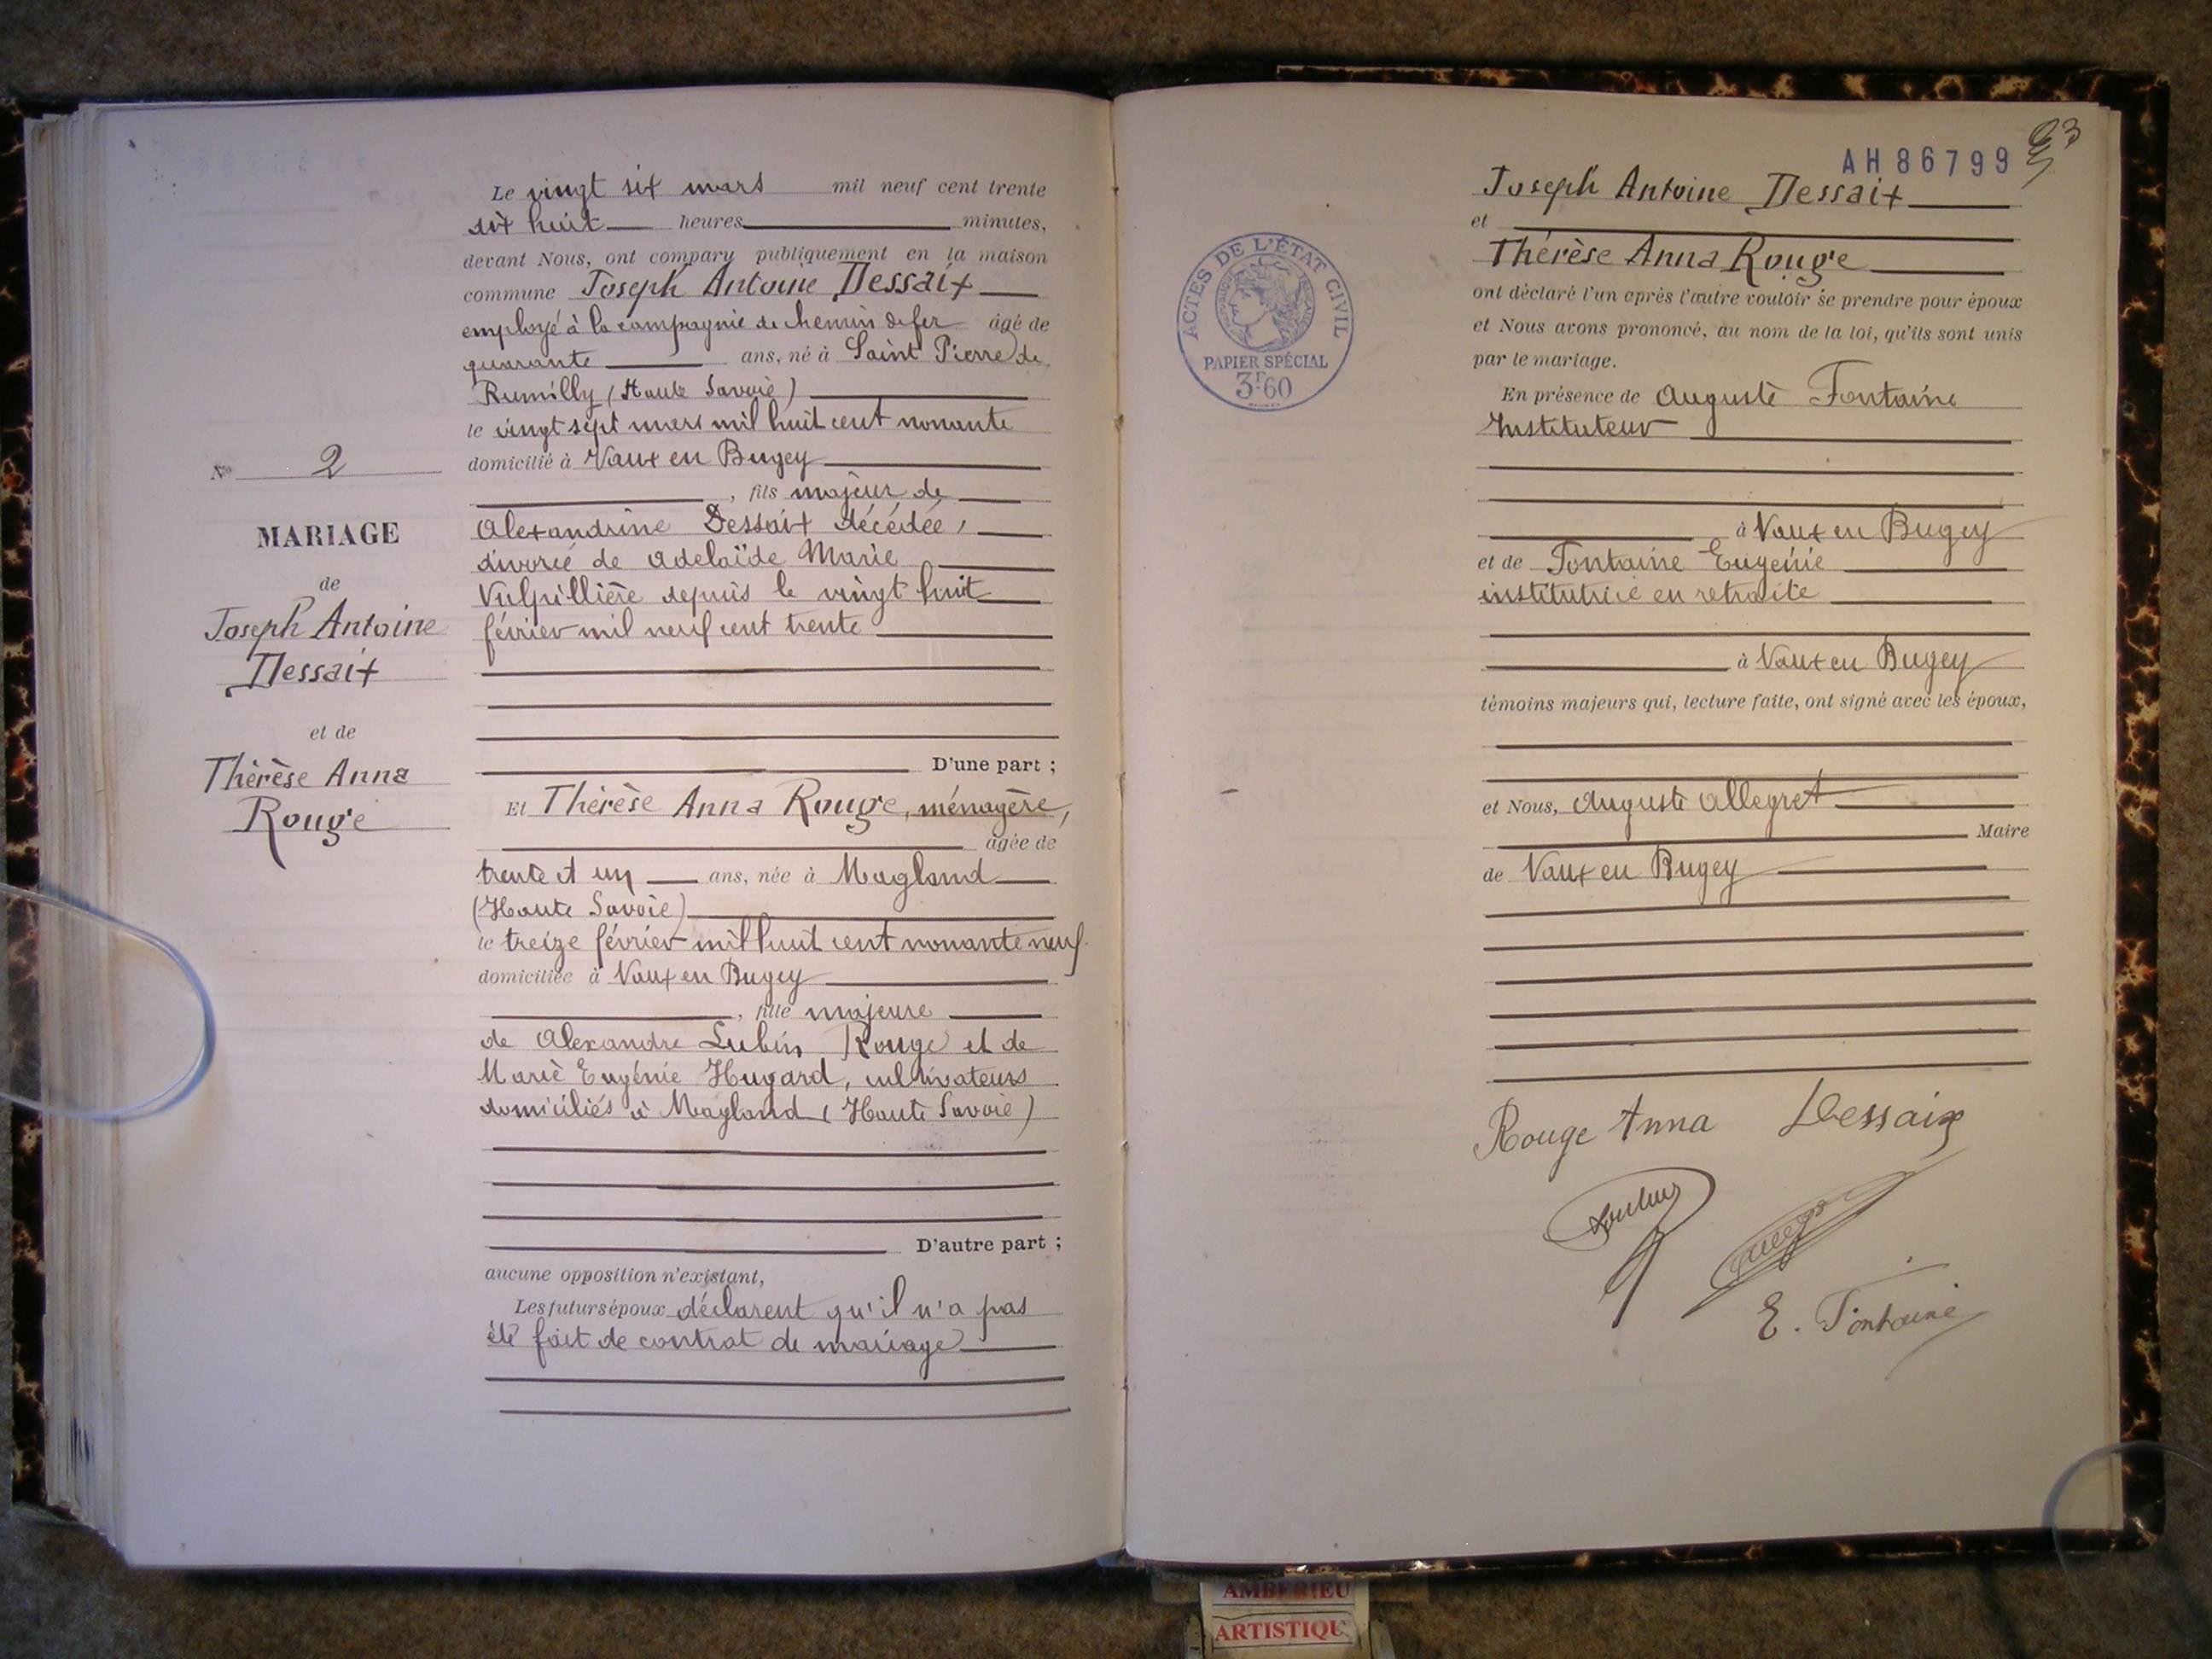 Le vingt six mars mil neuf cent trente
dix huit heures minutes,
devant Nous, ont comparu publiquement en la maison
commune Joseph Antoine Dessaix
employé à la compagnie de chemin de fer âgé de
quarante ans, né à Saint Pierre de
Rumilly (Haute Savoie)
le vingt sept mars mil huit cent nonante
domicilié à Vaux en Bugey
, fils majeur de
Alexandrine Dessaix décédée,
divorcé de Adelaïde Marie
Vulpillière depuis le vingt huit
février mil neuf cent trente
D'une part ;
Et Thérèse Anna Rouge, ménagère,
âgée de
trente et un ans, née à Magland
(Haute Savoie)
le treize février mil huit cent nonante neuf
domiciliée à Vaux en Bugey
, fille majeure
de Alexandre Lubin Rouge et de
Marie Eugénie Hugard, cultivateurs
domiciliés à Magland (Haute Savoie)
D'autre part ;
aucune opposition n'existant,
Les futurs époux déclarent qu'il n'a pas
été fait de contrat de mariage
No 2
MARIAGE
de
Joseph Antoine
Dessaix
et de
Thérèse Anna
Rouge
AH 86799
Joseph Antoine Dessaix
et
Thérèse Anna Rouge
ont déclaré l'un après l'autre vouloir se prendre pour époux
et Nous avons prononcé, au nom de la loi, qu'ils sont unis
par le mariage.
En présence de Auguste Fontaine
Instituteur
à Vaux en Bugey
et de Fontaine Eugénie
institutrice en retraite
à Vaux en Bugey
témoins majeurs qui, lecture faite, ont signé avec les époux,
et Nous, Auguste Allegret
Maire
de Vaux en Bugey
Rouge Anna Dessaix
E. Fontaine
ACTES DE L'ÉTAT CIVIL
PAPIER SPÉCIAL
3F60
AMBERIEU
ARTISTIQU